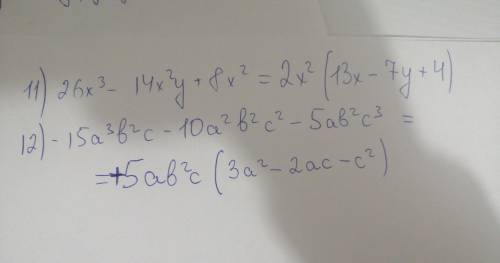 11) 26x³ - 14x²y + 8x² = 2x² (13x - 7y + 4)
12) - 15a³b²c - 10a²b²c² - 5ab²c³ =
= +5ab²c (3a² - 2ac - c²)